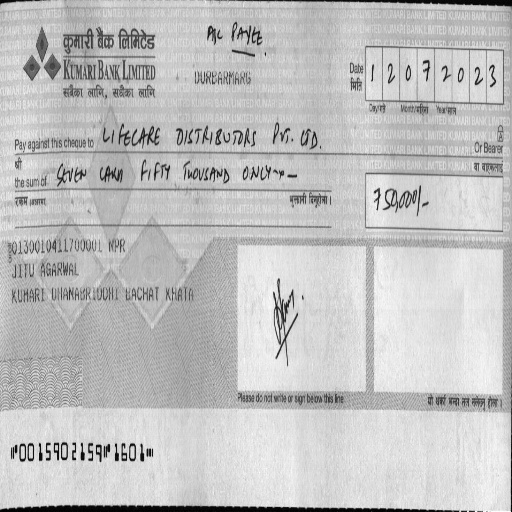 कुमारी बैंक लिमिटेड
KUMARI BANK LIMITED
सबैका लागि, सधैंका लागि
A/C PAYEE
DURBARMARG
Date 12072023
मिति
Day/गते Month/महिना Year/साल
Pay against this cheque to LIFECARE DISTRIBUTORS PVT. LTD.
Or Bearer
श्री
वा वाहकलाई
the sum of SEVEN LAKH FIFTY THOUSAND ONLY
750,000/-
रकम (अक्षरमा)
भुक्तानी दिनुहोला।
0130010411700001 NPR
JITU AGARWAL
KUMARI DHANABRIDDHI BACHAT KHATA
Please do not write or sign below this line
यो भन्दा तल
⑈0015902159⑈1601⑈